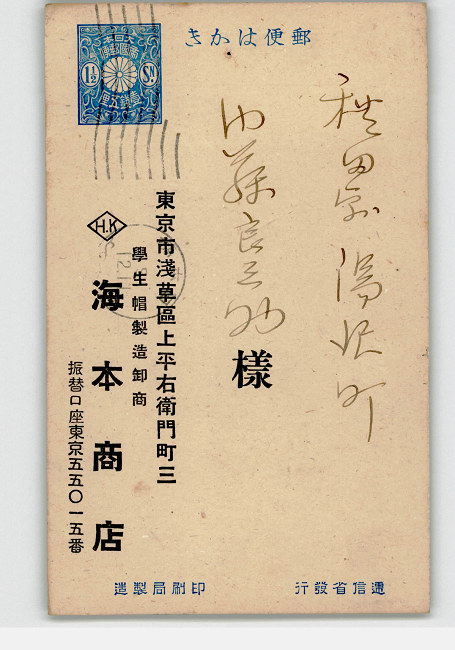 きかは便郵
大日本
帝國郵便
1½
SN.
壹錢五厘
秋田縣湯沢町
内藤良三助
樣
東京市淺草區上平右衛門町三
學生帽製造卸商
H.K
海本商店
振替口座東京五五〇一五番
造製局刷印
行發省信遞